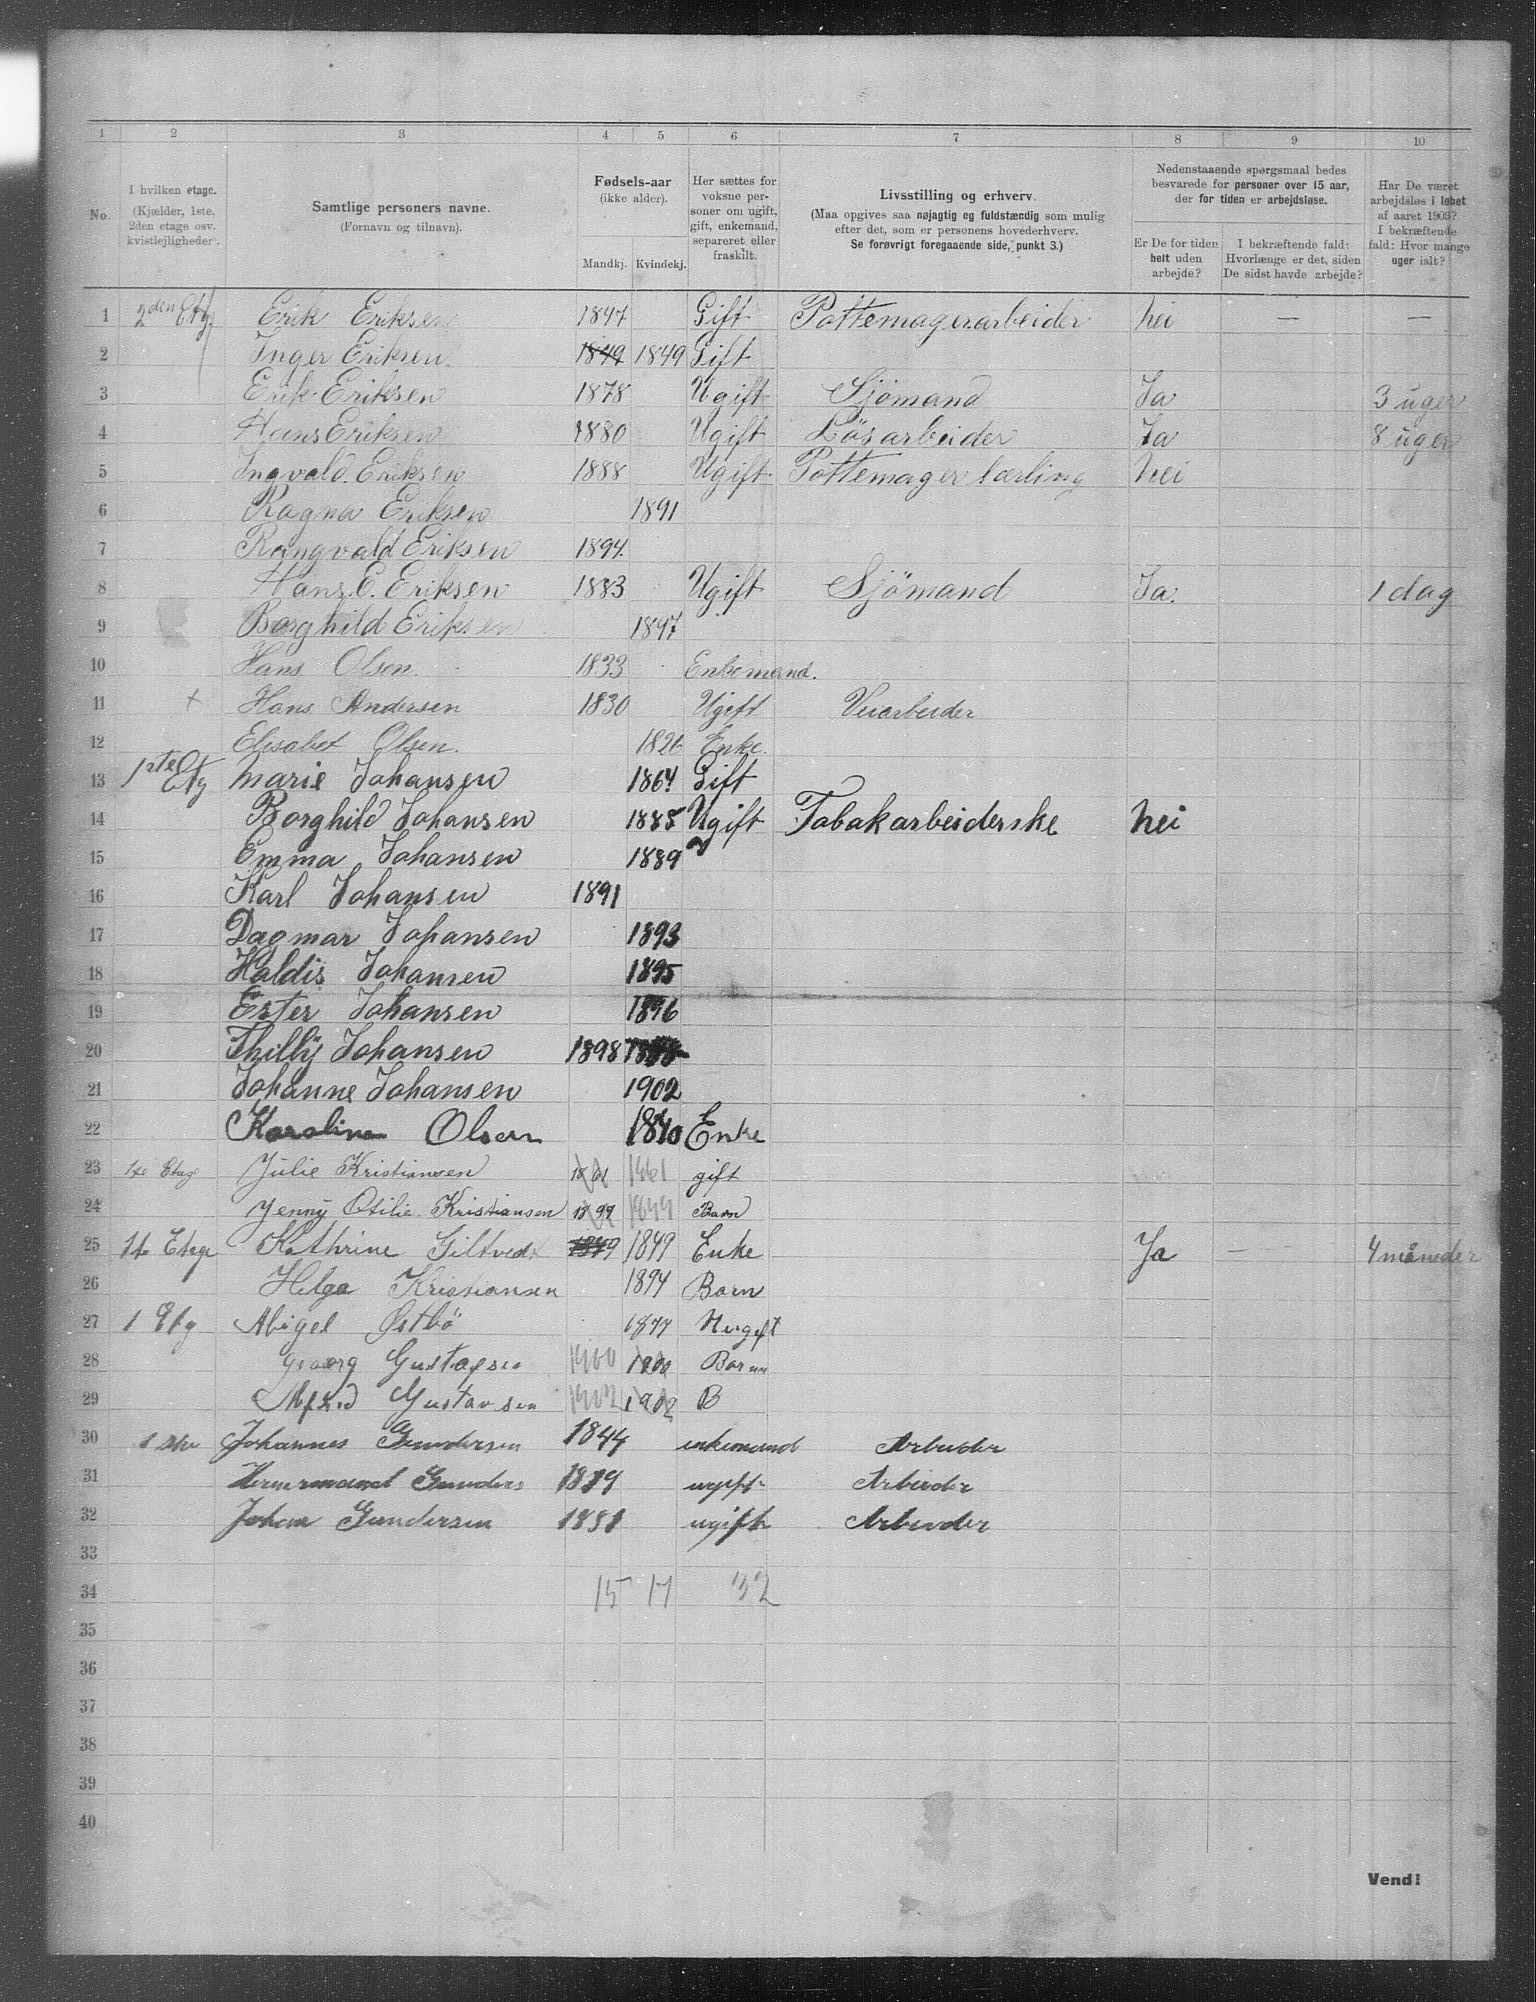 1 2 3 4 5 6 7 8 9 10
No. I hvilken etage. (Kjælder, 1ste, 2den etage osv. kvistlejligheder). Samtlige personers navne. (Fornavn og tilnavn). Fødsels-aar (ikke alder). Mandkj. Kvindekj. Her sættes for voksne personer om ugift, gift, enkemand, separeret eller fraskilt. Livsstilling og erhverv. (Maa opgives saa nøjagtig og fuldstændig som mulig efter det, som er personens hovederhverv. Se forøvrigt foregaaende side, punkt 3.) Nedenstaaende spørgsmaal bedes besvarede for personer over 15 aar, der for tiden er arbejdsløse. Er De for tiden helt uden arbejde? I bekræftende fald: Hvorlænge er det, siden De sidst havde arbejde? Har De været arbejdsløs i løbet af aaret 1903? I bekræftende fald: Hvor mange uger ialt?
1 2den Etg. Erik Eriksen 1847 Gift Pottemagerarbeider Nei — —
2 Inger Eriksen. 1849 1849 Gift
3 Erik Eriksen 1878 Ugift Sjömand Ja 3 uger
4 Hans Eriksen 1880 Ugift Lösarbeider Ja 8 uger
5 Ingvald Eriksen 1888 Ugift Pottemager lærling Nei
6 Ragna Eriksen 1891
7 Rangvald Eriksen 1894.
8 Hans. E. Eriksen 1883 Ugift Sjömand Ja. 1 dag
9 Borghild Eriksen 1897
10 Hans Olsen. 1833 Enkemand.
11 + Hans Andersen 1830 Ugift Veiarbeider
12 Elisabet Olsen. 1826 Enke.
13 1ste Etg Marie Johansen 1864 Gift
14 Borghild Johansen 1885 Ugift Tobakarbeiderske Nei
15 Emma Johansen 1889
16 Karl Johansen 1891
17 Dagmar Johansen 1893
18 Haldis Johansen 1895
19 Ester Johansen 1896
20 Thilly Johansen 1898
21 Johanne Johansen 1902
22 Karoline Olsen 1840 Enke
23 1te Etage Julie Kristiansen 1861 1861 gift
24 Jenny Otilie Kristiansen 1899 1899 Barn
25 1te Etage Kathrine Giltvedt 1849 1849 Enke Ja — 4 måneder
26 Helga Kristiansen 1894 Barn
27 1 Etg Abigel Østbö 1877 Uugift
28 Georg Gustafsen 1900 1900 Barn
29 Alfred Gustavsen 1902 1902 B
30 1 ste Johannes Gundersen 1844 enkemand Arbeider
31 Hermand Gunders 1879 ugift Arbeider
32 Johan Gundersen 1881 ugift Arbeider
33
34 15 17 32
35
36
37
38
39
40
Vend!